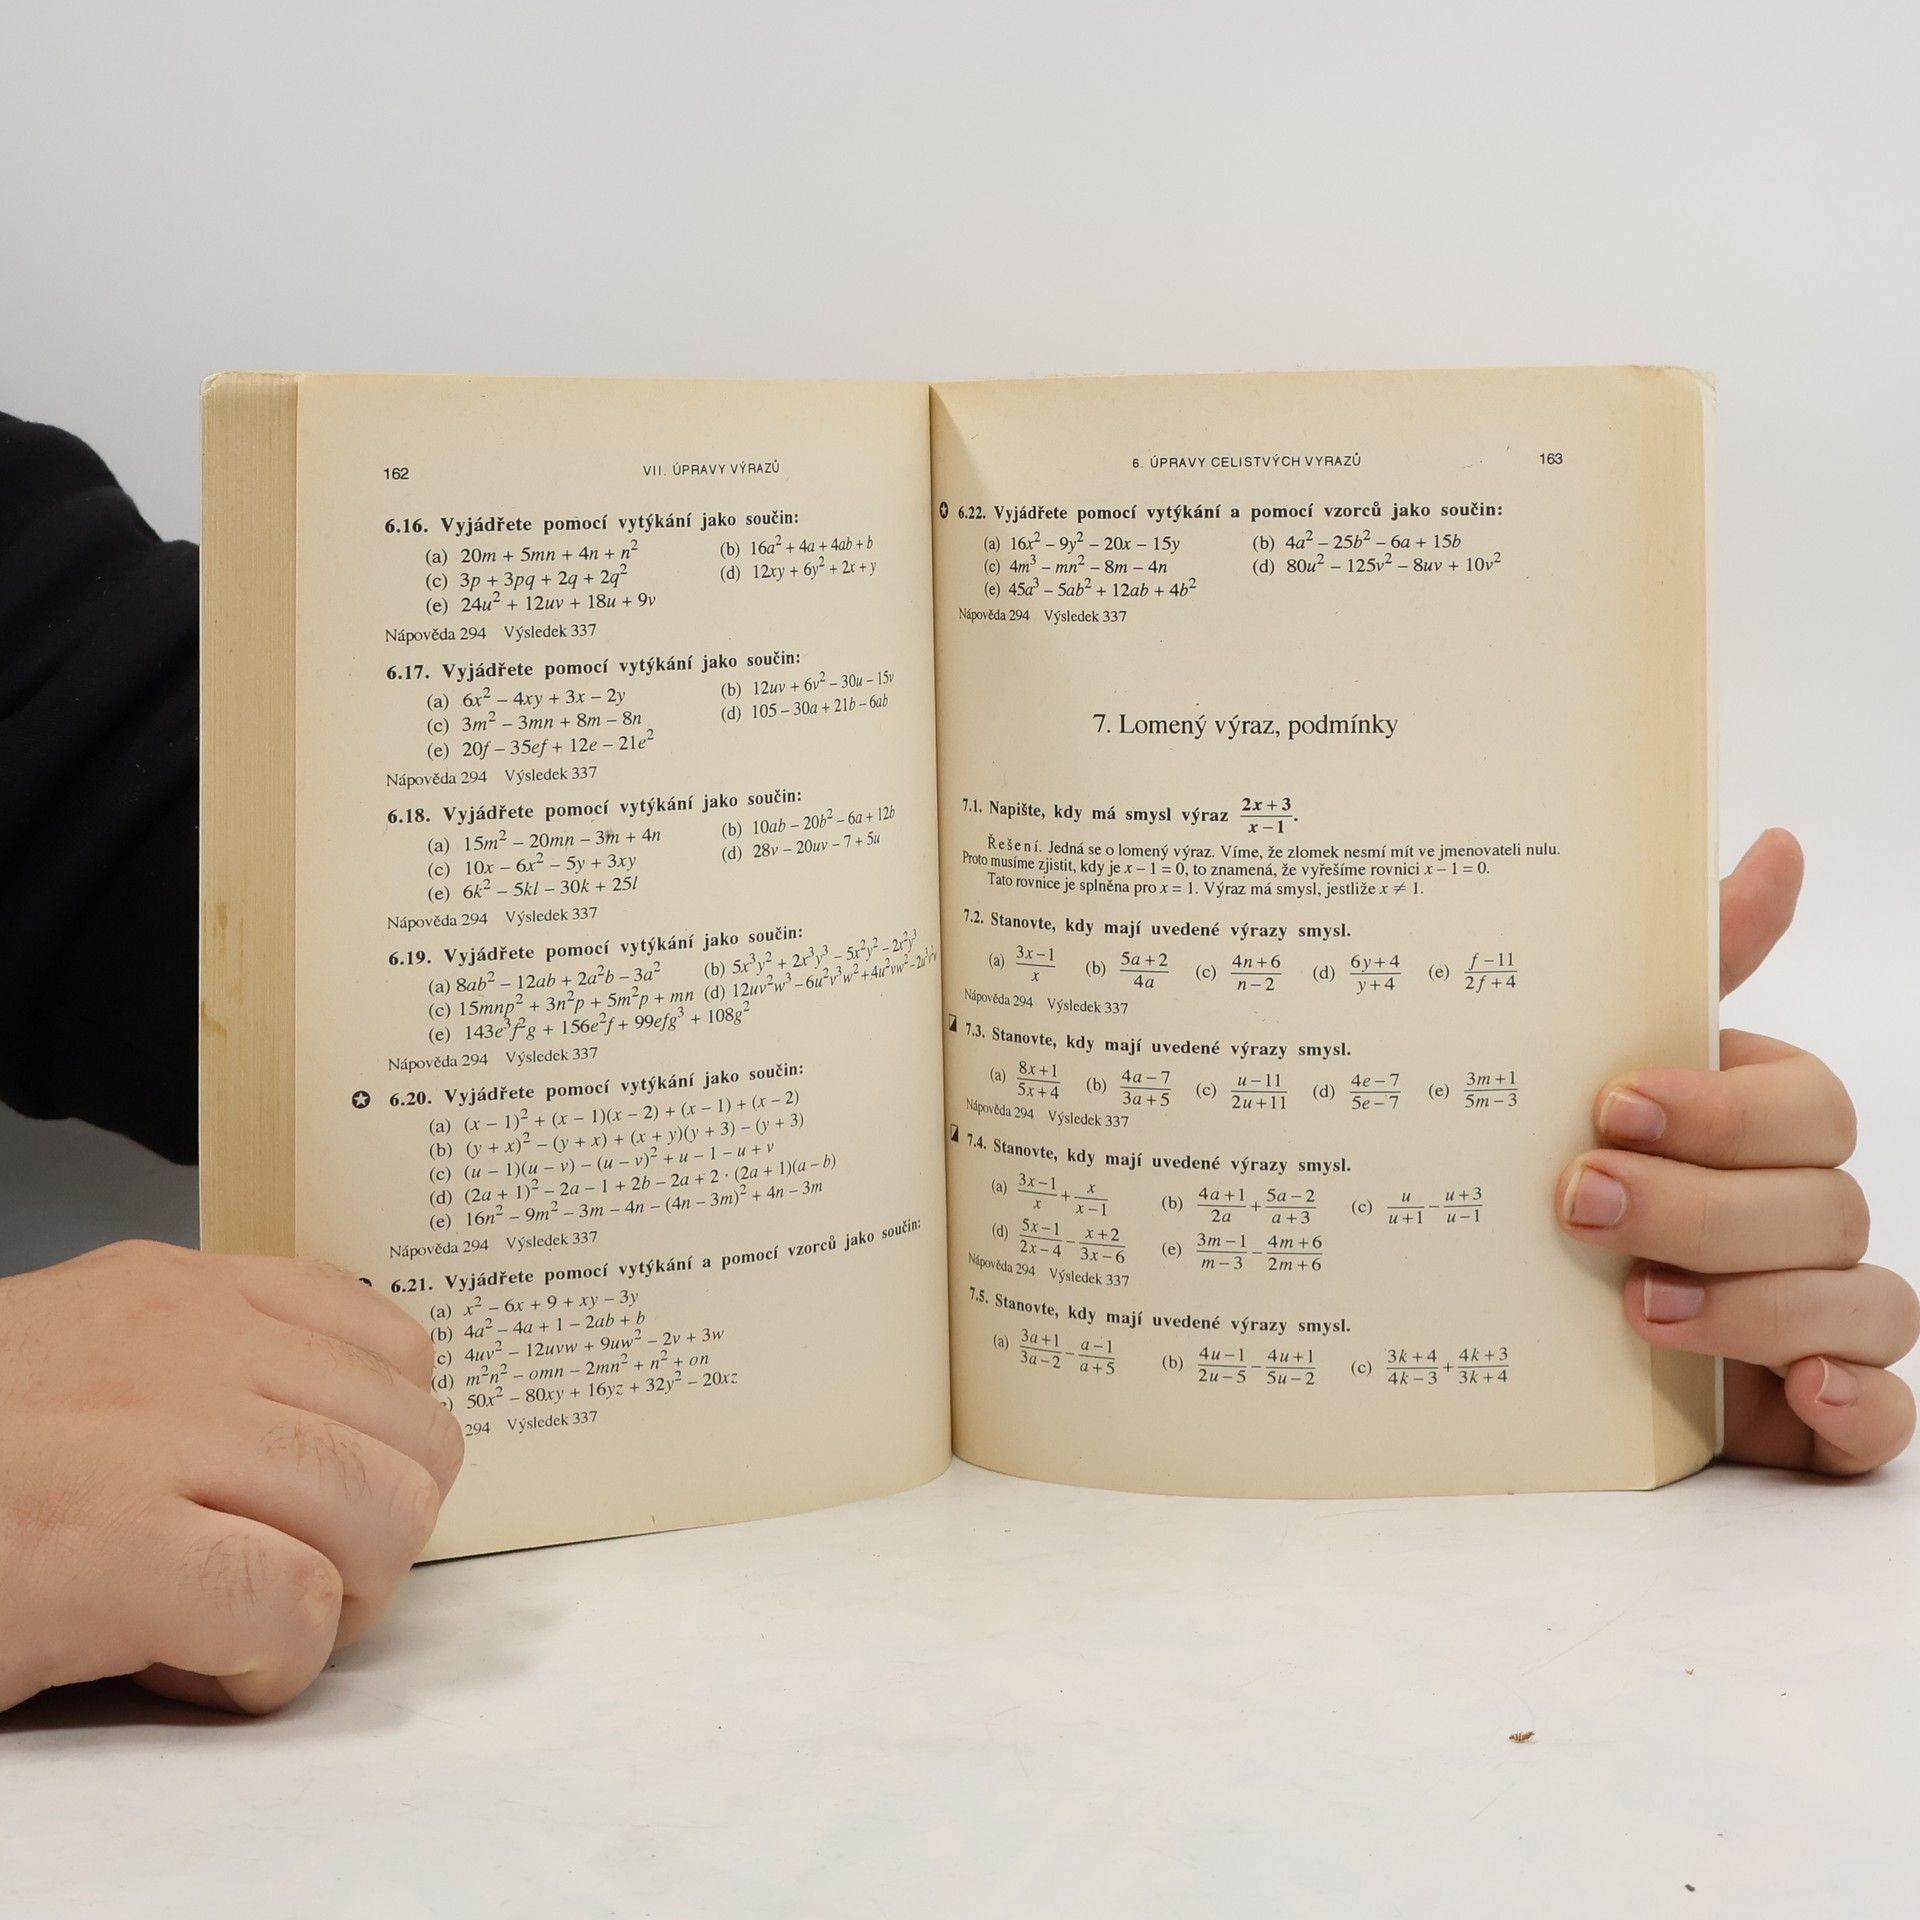 162
VII. ÚPRAVY VÝRAZŮ
6.16. Vyjádřete pomocí vytýkání jako součin:
(a) 20m + 5mn + 4n + n² (b) 16a² + 4a + 4ab + b
(c) 3p + 3pq + 2q + 2q² (d) 12xy + 6y² + 2x + y
(e) 24u² + 12uv + 18u + 9v
Nápověda 294 Výsledek 337
6.17. Vyjádřete pomocí vytýkání jako součin:
(a) 6x² – 4xy + 3x – 2y (b) 12uv + 6v² – 30u – 15v
(c) 3m² – 3mn + 8m – 8n (d) 105 – 30a + 21b – 6ab
(e) 20f – 35ef + 12e – 21e²
Nápověda 294 Výsledek 337
6.18. Vyjádřete pomocí vytýkání jako součin:
(a) 15m² – 20mn – 3m + 4n (b) 10ab – 20b² – 6a + 12b
(c) 10x – 6x² – 5y + 3xy (d) 28v – 20uv – 7 + 5u
(e) 6k² – 5kl – 30k + 25l
Nápověda 294 Výsledek 337
6.19. Vyjádřete pomocí vytýkání jako součin:
(a) 8ab² – 12ab + 2a²b – 3a² (b) 5x³y² + 2x³y³ – 5x²y² – 2x²y³
(c) 15mnp² + 3n²p + 5m²p + mn (d) 12uv²w³ – 6u²v³w² + 4u²vw²
(e) 143e³f²g + 156e²f + 99efg³ + 108g²
Nápověda 294 Výsledek 337
6.20. Vyjádřete pomocí vytýkání jako součin:
(a) (x – 1)² + (x – 1)(x – 2) + (x – 1) + (x – 2)
(b) (y + x)² – (y + x) + (x + y)(y + 3) – (y + 3)
(c) (u – 1)(u – v) – (u – v)² + u – 1 – u + v
(d) (2a + 1)² – 2a – 1 + 2b – 2a + 2 · (2a + 1)(a – b)
(e) 16n² – 9m² – 3m – 4n – (4n – 3m)² + 4n – 3m
Nápověda 294 Výsledek 337
6.21. Vyjádřete pomocí vytýkání a pomocí vzorců jako součin:
(a) x² – 6x + 9 + xy – 3y
(b) 4a² – 4a + 1 – 2ab + b
c) 4uv² – 12uvw + 9uw² – 2v + 3w
(d) m²n² – omn – 2mn² + n² + on
) 50x² – 80xy + 16yz + 32y² – 20xz
294 Výsledek 337
6. ÚPRAVY CELISTVÝCH VYRAZŮ
163
6.22. Vyjádřete pomocí vytýkání a pomocí vzorců jako součin:
(a) 16x² – 9y² – 20x – 15y (b) 4a² – 25b² – 6a + 15b
(c) 4m³ – mn² – 8m – 4n (d) 80u² – 125v² – 8uv + 10v²
(e) 45a³ – 5ab² + 12ab + 4b²
Nápověda 294 Výsledek 337
7. Lomený výraz, podmínky
7.1. Napište, kdy má smysl výraz (2x+3)/(x–1).
Řešení. Jedná se o lomený výraz. Víme, že zlomek nesmí mít ve jmenovateli nulu.
Proto musíme zjistit, kdy je x – 1 = 0, to znamená, že vyřešíme rovnici x – 1 = 0.
Tato rovnice je splněna pro x = 1. Výraz má smysl, jestliže x ≠ 1.
7.2. Stanovte, kdy mají uvedené výrazy smysl.
(a) (3x–1)/x (b) (5a+2)/(4a) (c) (4n+6)/(n–2) (d) (6y+4)/(y+4) (e) (f–11)/(2f+4)
Nápověda 294 Výsledek 337
7.3. Stanovte, kdy mají uvedené výrazy smysl.
(a) (8x+1)/(5x+4) (b) (4a–7)/(3a+5) (c) (u–11)/(2u+11) (d) (4e–7)/(5e–7) (e) (3m+1)/(5m–3)
Nápověda 294 Výsledek 337
7.4. Stanovte, kdy mají uvedené výrazy smysl.
(a) (3x–1)/x + x/(x–1) (b) (4a+1)/(2a) + (5a–2)/(a+3) (c) u/(u+1) – (u+3)/(u–1)
(d) (5x–1)/(2x–4) – (x+2)/(3x–6) (e) (3m–1)/(m–3) – (4m+6)/(2m+6)
Nápověda 294 Výsledek 337
7.5. Stanovte, kdy mají uvedené výrazy smysl.
(a) (3a+1)/(3a–2) – (a–1)/(a+5) (b) (4u–1)/(2u–5) – (4u+1)/(5u–2) (c) (3k+4)/(4k–3) + (4k+3)/(3k+4)